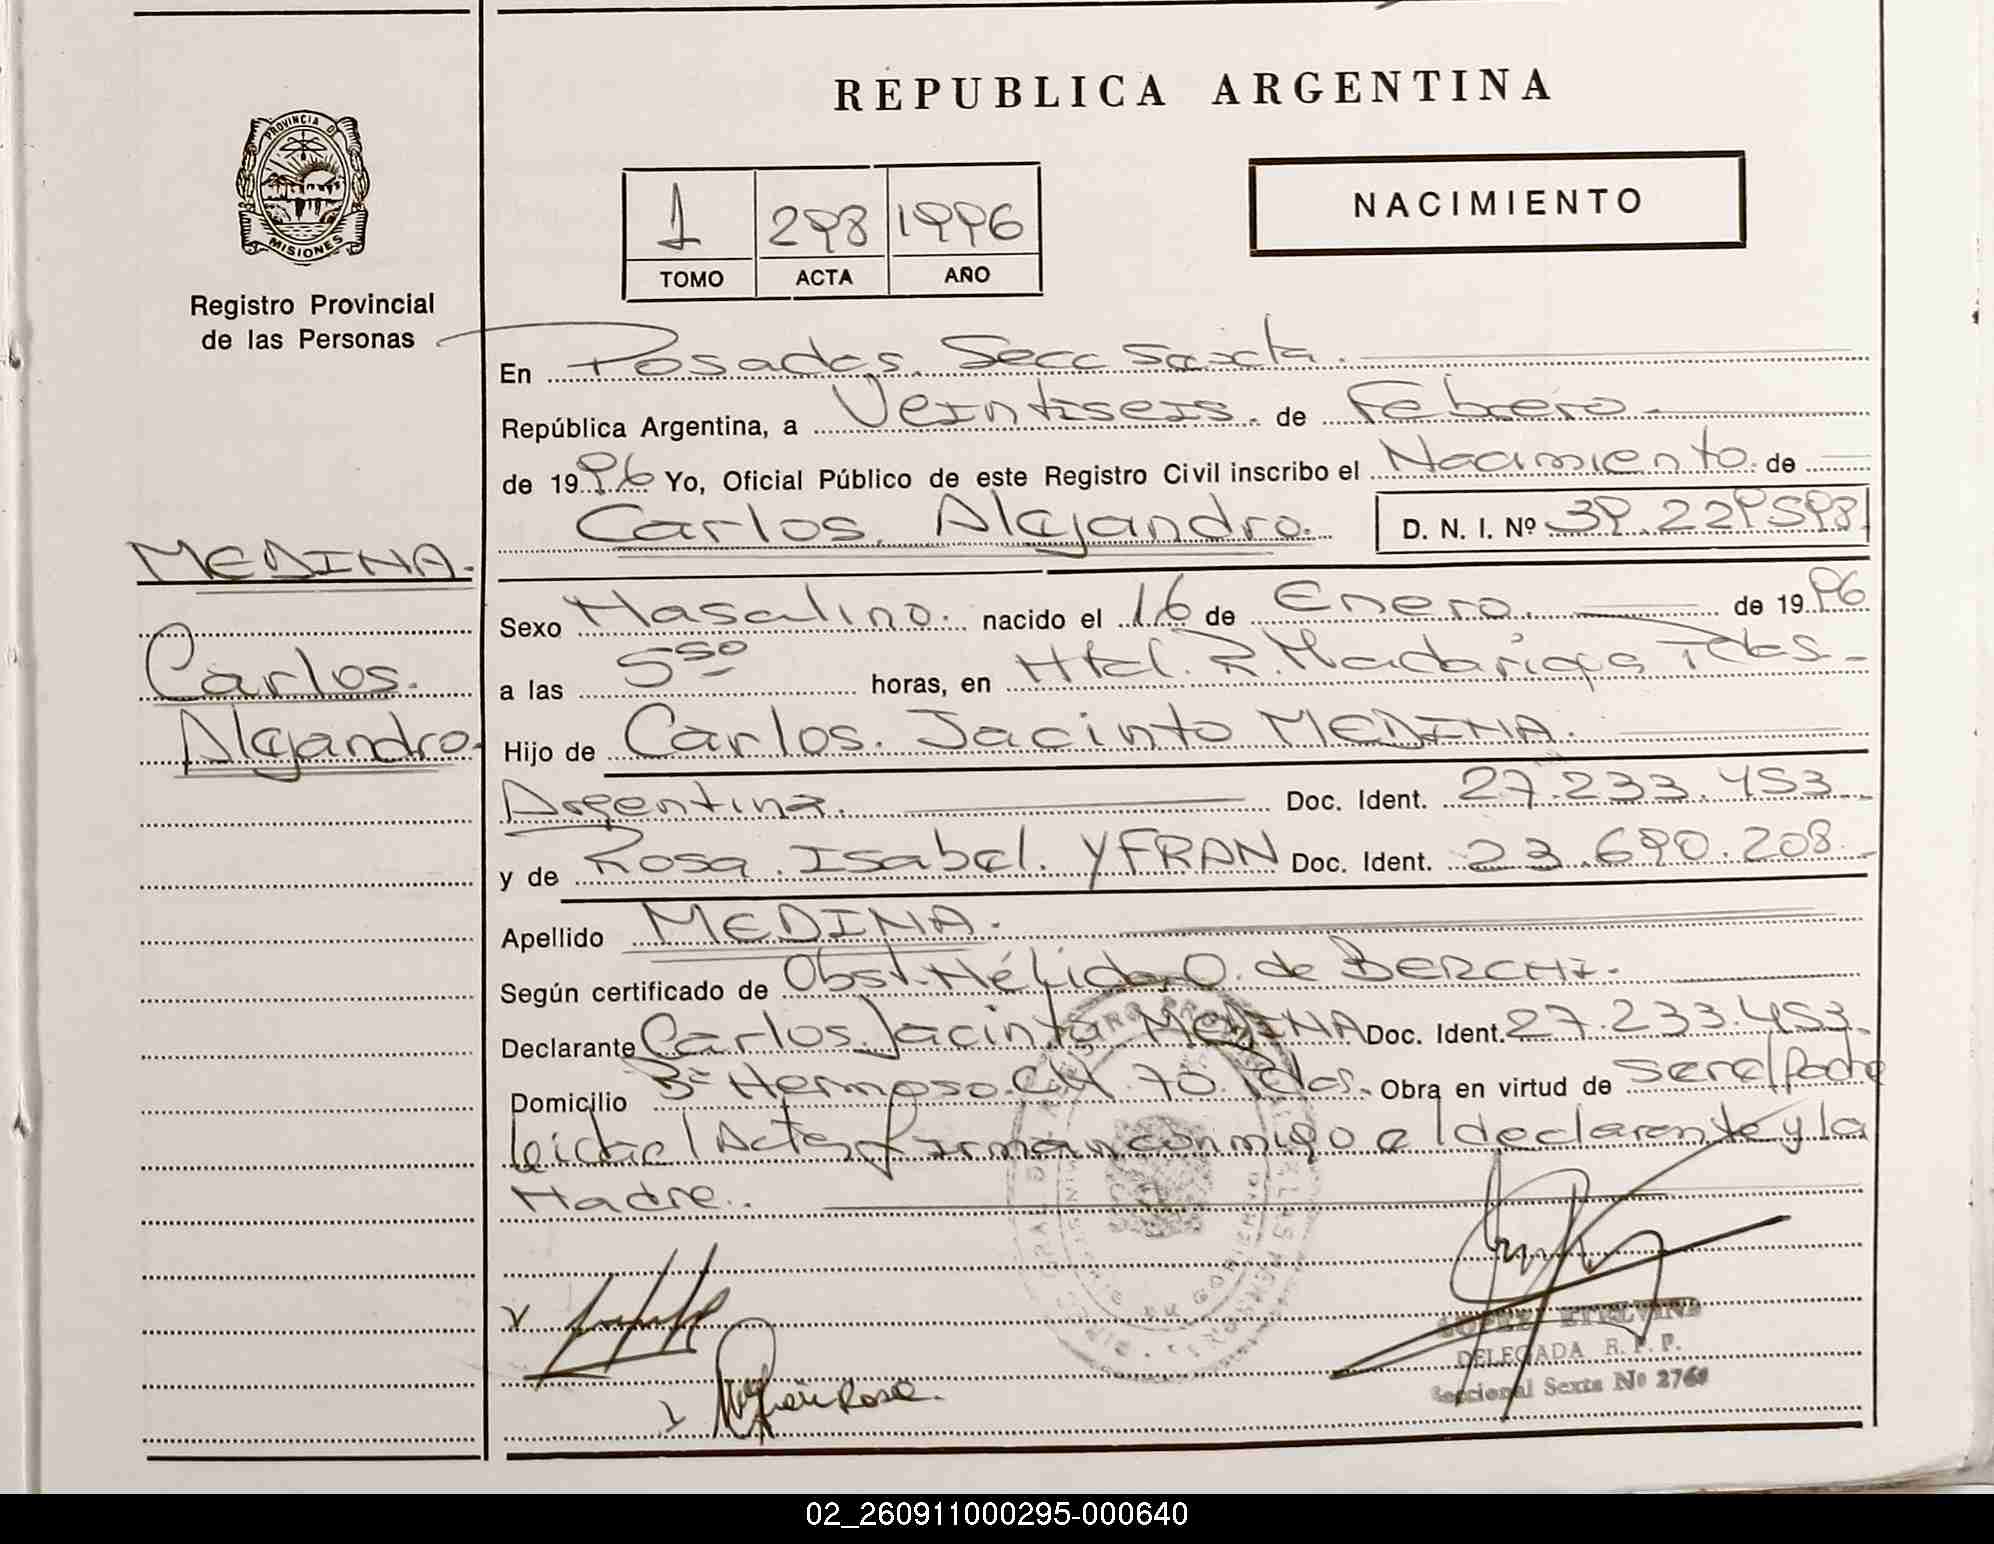 REPUBLICA ARGENTINA
PROVINCIA D
MISIONES
Registro Provincial
de las Personas
1 298 1996
TOMO ACTA AÑO
NACIMIENTO
En Posadas. Secc Sexta.
República Argentina, a Veintiseis. de Febrero.
de 1996 Yo, Oficial Público de este Registro Civil inscribo el Nacimiento. de
Carlos. Alejandro. D. N. I. Nº 39.229598
MEDINA.
Carlos.
Alejandro.
Sexo Masculino. nacido el 16 de Enero. de 1996
a las 5⁵⁰ horas, en Htal. R. Madariaga Pdas.
Hijo de Carlos. Jacinto MEDINA.
Argentina. Doc. Ident. 27.233.453
y de Rosa. Isabel. YFRAN Doc. Ident. 23.690.208.
Apellido MEDINA.
Según certificado de Obst. Hélida O. de BERCHI.
Declarante Carlos. Jacinto MEDINA Doc. Ident. 27.233.453.
Domicilio Bº Hermoso. CH. 70. Pdas. Obra en virtud de ser el padre
leida el Acta firman conmigo el declarante y la
Madre.
LOPEZ ETELVINA
DELEGADA R. P. P.
Seccional Sexta Nº 276
02_260911000295-000640